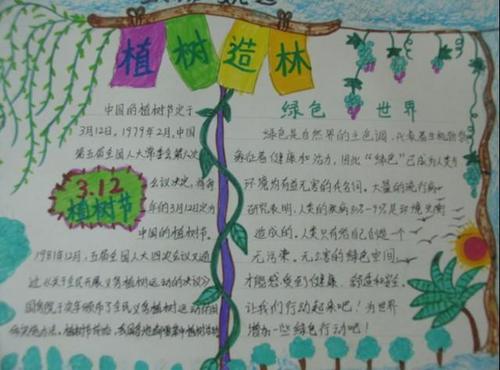 植树造林
中国的植树节定于
3月12日。1979年2月,中国
第五届全国人大常委会第六次
会议决定,将每
年的3月12日定为
中国的植树节。
3.12
植树节
1981年12月,五届全国人大四次会议又通
过《关于开展义务植树运动的决议》
绿色世界
绿色是自然界的主色调,代表着生机勃勃
象征着健康和活力,因此“绿色”已成为人类与
环境为有益无害的代名词。大量的流行病
研究表明,人类的疾病
造成的。人类只有给自己创造一个
无污染、无公害的绿色空间,
才能感受到健康、舒适和
让我们行动起来吧!为世界
增加一些绿色行动吧!